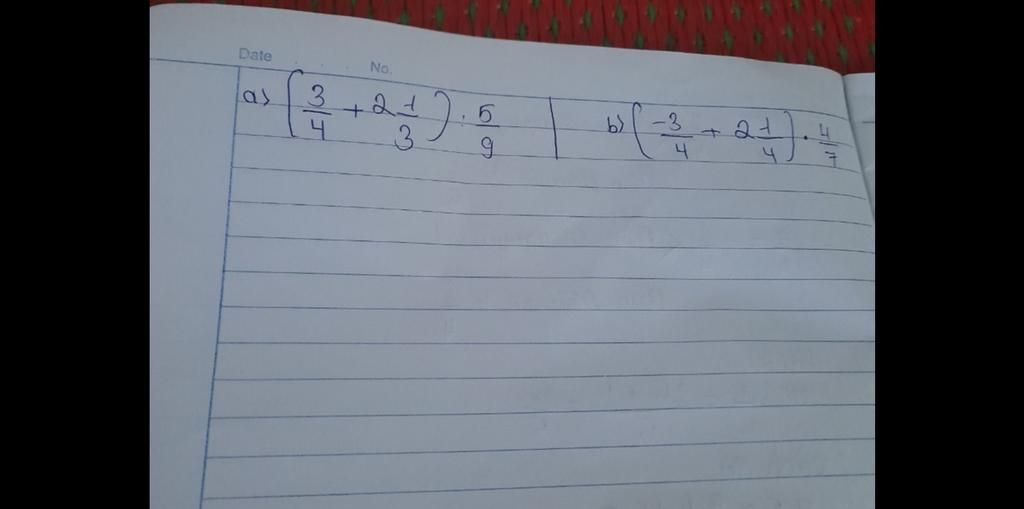 Date No.
a) (3/4 + 2 1/3) . 5/9
b) (-3/4 + 2 1/4) . 4/7